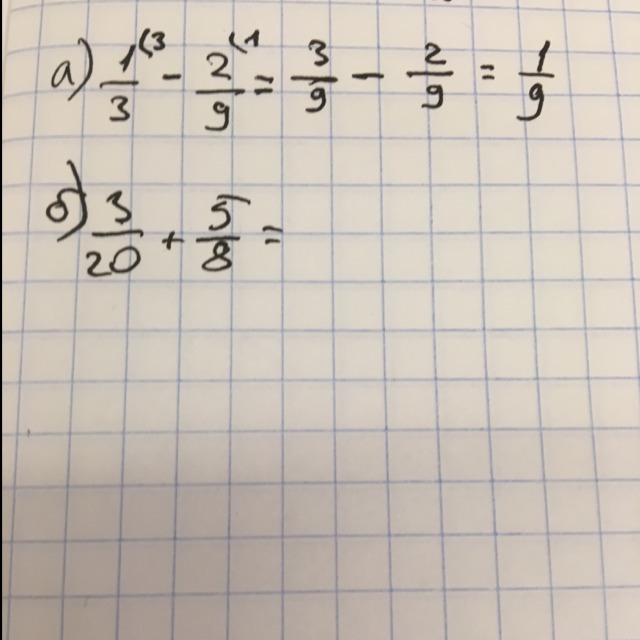 а) 1/3 (3 - 2/9 (1 = 3/9 - 2/9 = 1/9
б) 3/20 + 5/8 =